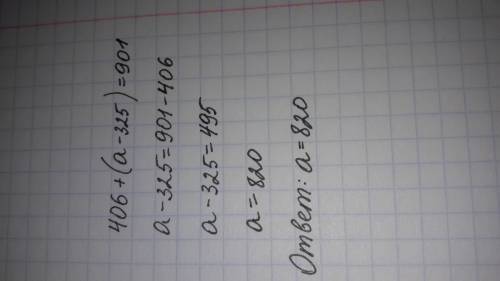 406+(a-325)=901
a-325=901-406
a-325=495
a=820
Ответ: a=820